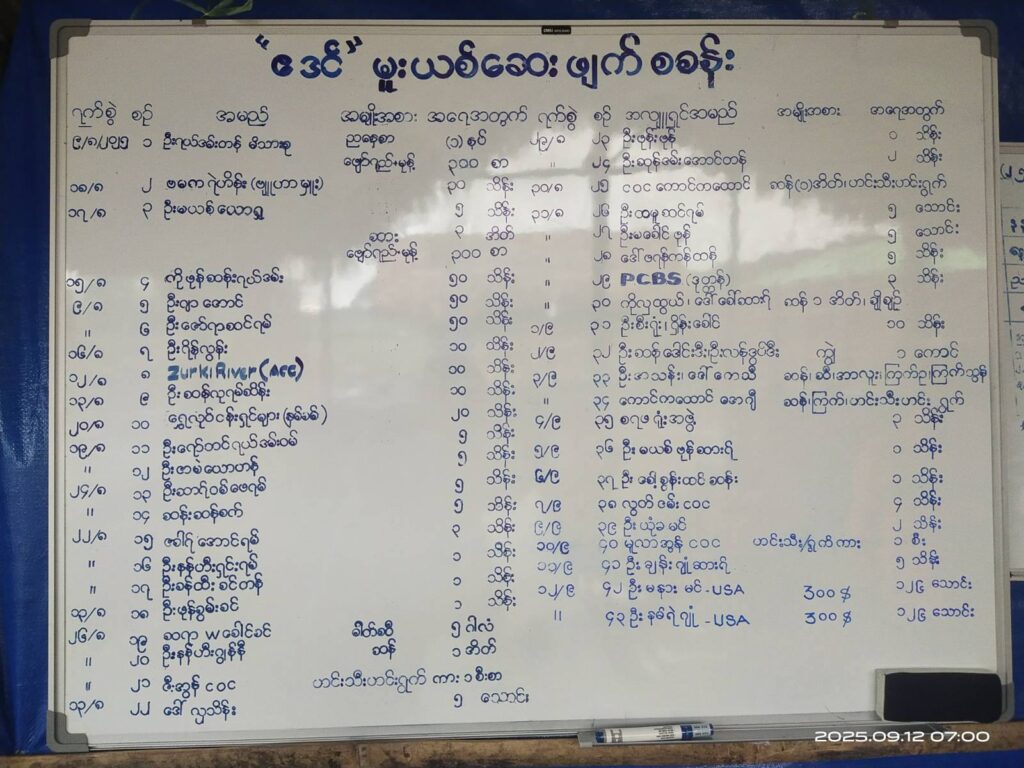 "ဧဒင်" မူးယစ်ဆေး ဖျက် စခန်း
ရက်စွဲ စဉ် အမည် အမျိုးအစား အရေအတွက်
၉/၈/၂၀၂၅ ၁ ဦးရယ်အမ်းတန် မိသားစု ညနေစာ (၁) နပ်
ဖျော်ရည်+မုန့် ၃၀၀ စာ
၁၈/၈ ၂ ဗမက ရဲဟိန်း (ဗျူဟာ မှူး) ၃၀ သိန်း
၁၇/၈ ၃ ဦးမယစ် ယောရှု ၅ သိန်း
ဆား ၃ အိတ်
ဖျော်ရည်+မုန့် ၃၀၀ စာ
၁၅/၈ ၄ ကိုဖုန်ဆန်းရယ်ဒမ်း ၅၀ သိန်း
၉/၈ ၅ ဦးဂျာ အောင် ၅၀ သိန်း
" ၆ ဦးဇော်ရာဆင်ရမ် ၅၀ သိန်း
၁၆/၈ ၇ ဦးပိုန်လွန်း ၁၀ သိန်း
၁၂/၈ ၈ Zurki River (Acc) ၁၀ သိန်း
၁၃/၈ ၉ ဦးဆန်လုရမ်ဆိန်း ၁၀ သိန်း
၂၀/၈ ၁၀ ရွှေလုပ်ငန်းရှင်များ (နမ်ခမ်) ၂၀ သိန်း
၁၉/၈ ၁၁ ဦးဂျော်တင်ရယ်အမ်းဝမ် ၅ သိန်း
" ၁၂ ဦးဇာမ်ယောတန် ၅ သိန်း
၂၄/၈ ၁၃ ဦးဆာရ်ဝစ်ဖေရမ် ၅ သိန်း
" ၁၄ ဆန်းဆန်စက် ၅ သိန်း
၂၂/၈ ၁၅ ဇခါရ်အောင်ရမ် ၃ သိန်း
" ၁၆ ဦးနန်ဟီးရှင်းရမ် ၁ သိန်း
" ၁၇ ဦးခန်ထီးခင်တန် ၁ သိန်း
၁၃/၈ ၁၈ ဦးဖုန်ခွမ်းခင် ၁ သိန်း
၂၆/၈ ၁၉ ဆရာ W ခေါင်ခင် ဓါတ်ဆီ ၅ ဂါလံ
" ၂၀ ဦးနန်ဟီးဂျွန်နီ ဆန် ၁ အိတ်
" ၂၁ ဇီးအွန် coc ဟင်းသီးဟင်းရွက် ကား ၁ စီးစာ
၁၃/၈ ၂၂ ဒေါ် လှသိန်း ၅ သောင်း
ရက်စွဲ စဉ် အလှူရှင်အမည် အမျိုးအစား အရေအတွက်
၂၉/၈ ၂၃ ဦးဖုန်းဖုန် ၁ သိန်း
၂၄ ဦးဆုန်ဒမ်းအောင်တန် ၂ သိန်း
၃၀/၈ ၂၅ coc ကောင်ကထောင် ဆန်(၁)အိတ်၊ဟင်းသီးဟင်းရွက်
၃၁/၈ ၂၆ ဦးထမူဆင်ရမ် ၅ သောင်း
" ၂၇ ဦးမခေါင်ဖုန် ၅ သောင်း
" ၂၈ ဒေါ်ဇရန်ကန်တန် ၅ သိန်း
" ၂၉ PCBS (ဒုတ္တန်) ၃ သိန်း
" ၃၀ ကိုလှထွယ်၊ ဒေါ်ခေါ်ဆာရ် ဆန် ၁ အိတ်၊ချိုချဉ်
၁/၉ ၃၁ ဦးစီးရုံး၊ပှိန်းခေါင် ၁၀ သိန်း
၂/၉ ၃၂ ဦးဆန်ခေါင်းဒီး၊ဦးလန်ဒွပ်ဒီး ကျွဲ ၁ ကောင်
၃/၉ ၃၃ ဦးအသန်း၊ ဒေါ်ကေသီ ဆန်၊ဆီ၊အာလူး၊ကြက်ဥ၊ကြက်သွန်
" ၃၄ ကောင်ကထောင် ဇေဂျီ ဆန်၊ကြက်၊ဟင်းသီးဟင်းရွက်
၄/၉ ၃၅ စရဖ ရုံးအဖွဲ့ ၃ သိန်း
၅/၉ ၃၆ ဦးမယစ်ဖုန်ဆားရ် ၁ သိန်း
၆/၉ ၃၇ ဦးခေါ့စွန်းထင်ဆန်း ၁ သိန်း
၇/၉ ၃၈ လွတ်ဇမ်း coc ၄ သိန်း
၉/၉ ၃၉ ဦးယုံခမင် ၂ သိန်း
၁၀/၉ ၄၀ မူလာအွန် coc ဟင်းသီး/ရွက်ကား ၁ စီး
၁၁/၉ ၄၁ ဦးချန်းဂျုံဆားရ် ၅ သိန်း
၁၂/၉ ၄၂ ဦး မနား မင် - USA 300 $ ၁၂၆ သောင်း
" ၄၃ ဦးနမ်ရဲဂျုံ - USA 300 $ ၁၂၆ သောင်း
2025.09.12 07:00